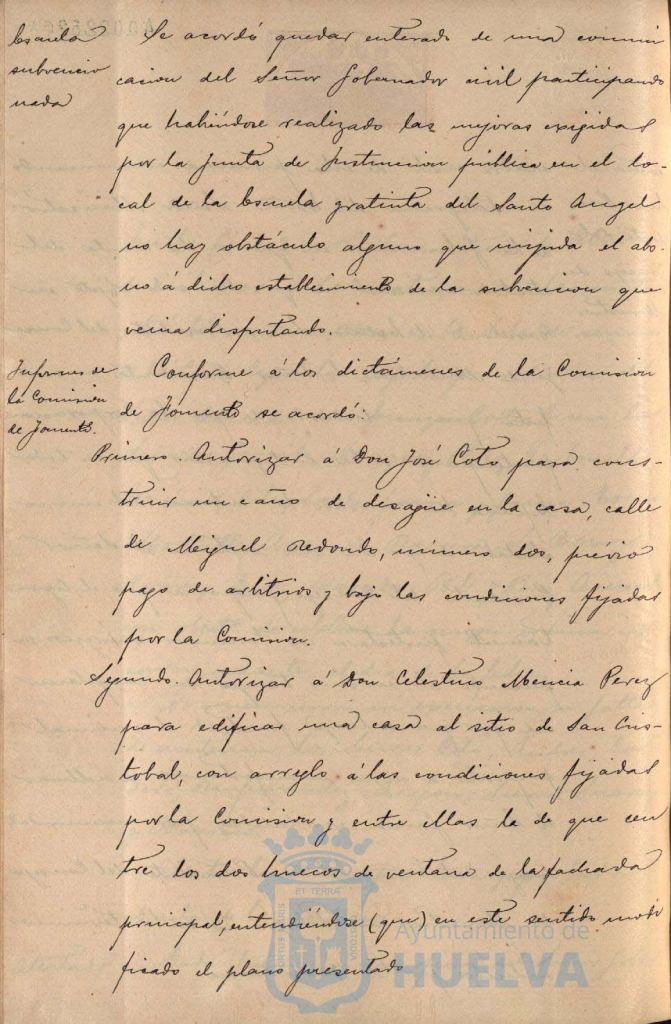 Escuela
subvencio
nada
Se acordó quedar enterado de una comuni
cacion del Señor Gobernador civil participando
que habiéndose realizado las mejoras exigidas
por la Junta de Instruccion pública en el lo-
cal de la Escuela gratuita del Santo Angel
no hay obstáculo alguno que impida el abo-
no á dicho establecimiento de la subvencion que
venia disfrutando.
Informes de
la Comision
de Fomento.
Conforme á los dictámenes de la Comision
de Fomento se acordó:
Primero. Autorizar á Don José Coto para cons-
truir un caño de desagüe en la casa, calle
de Miguel Redondo, número dos, prévio
pago de arbitrios y bajo las condiciones fijadas
por la Comision.
Segundo. Autorizar á Don Celestino Mencia Perez
para edificar una casa al sitio de San Cris-
tobal, con arreglo á las condiciones fijadas
por la Comision y entre ellas la de que cen
tre los dos huecos de ventana de la fachada
principal, entendiéndose (que) en este sentido modi
ficado el plano presentado
Ayuntamiento de
HUELVA